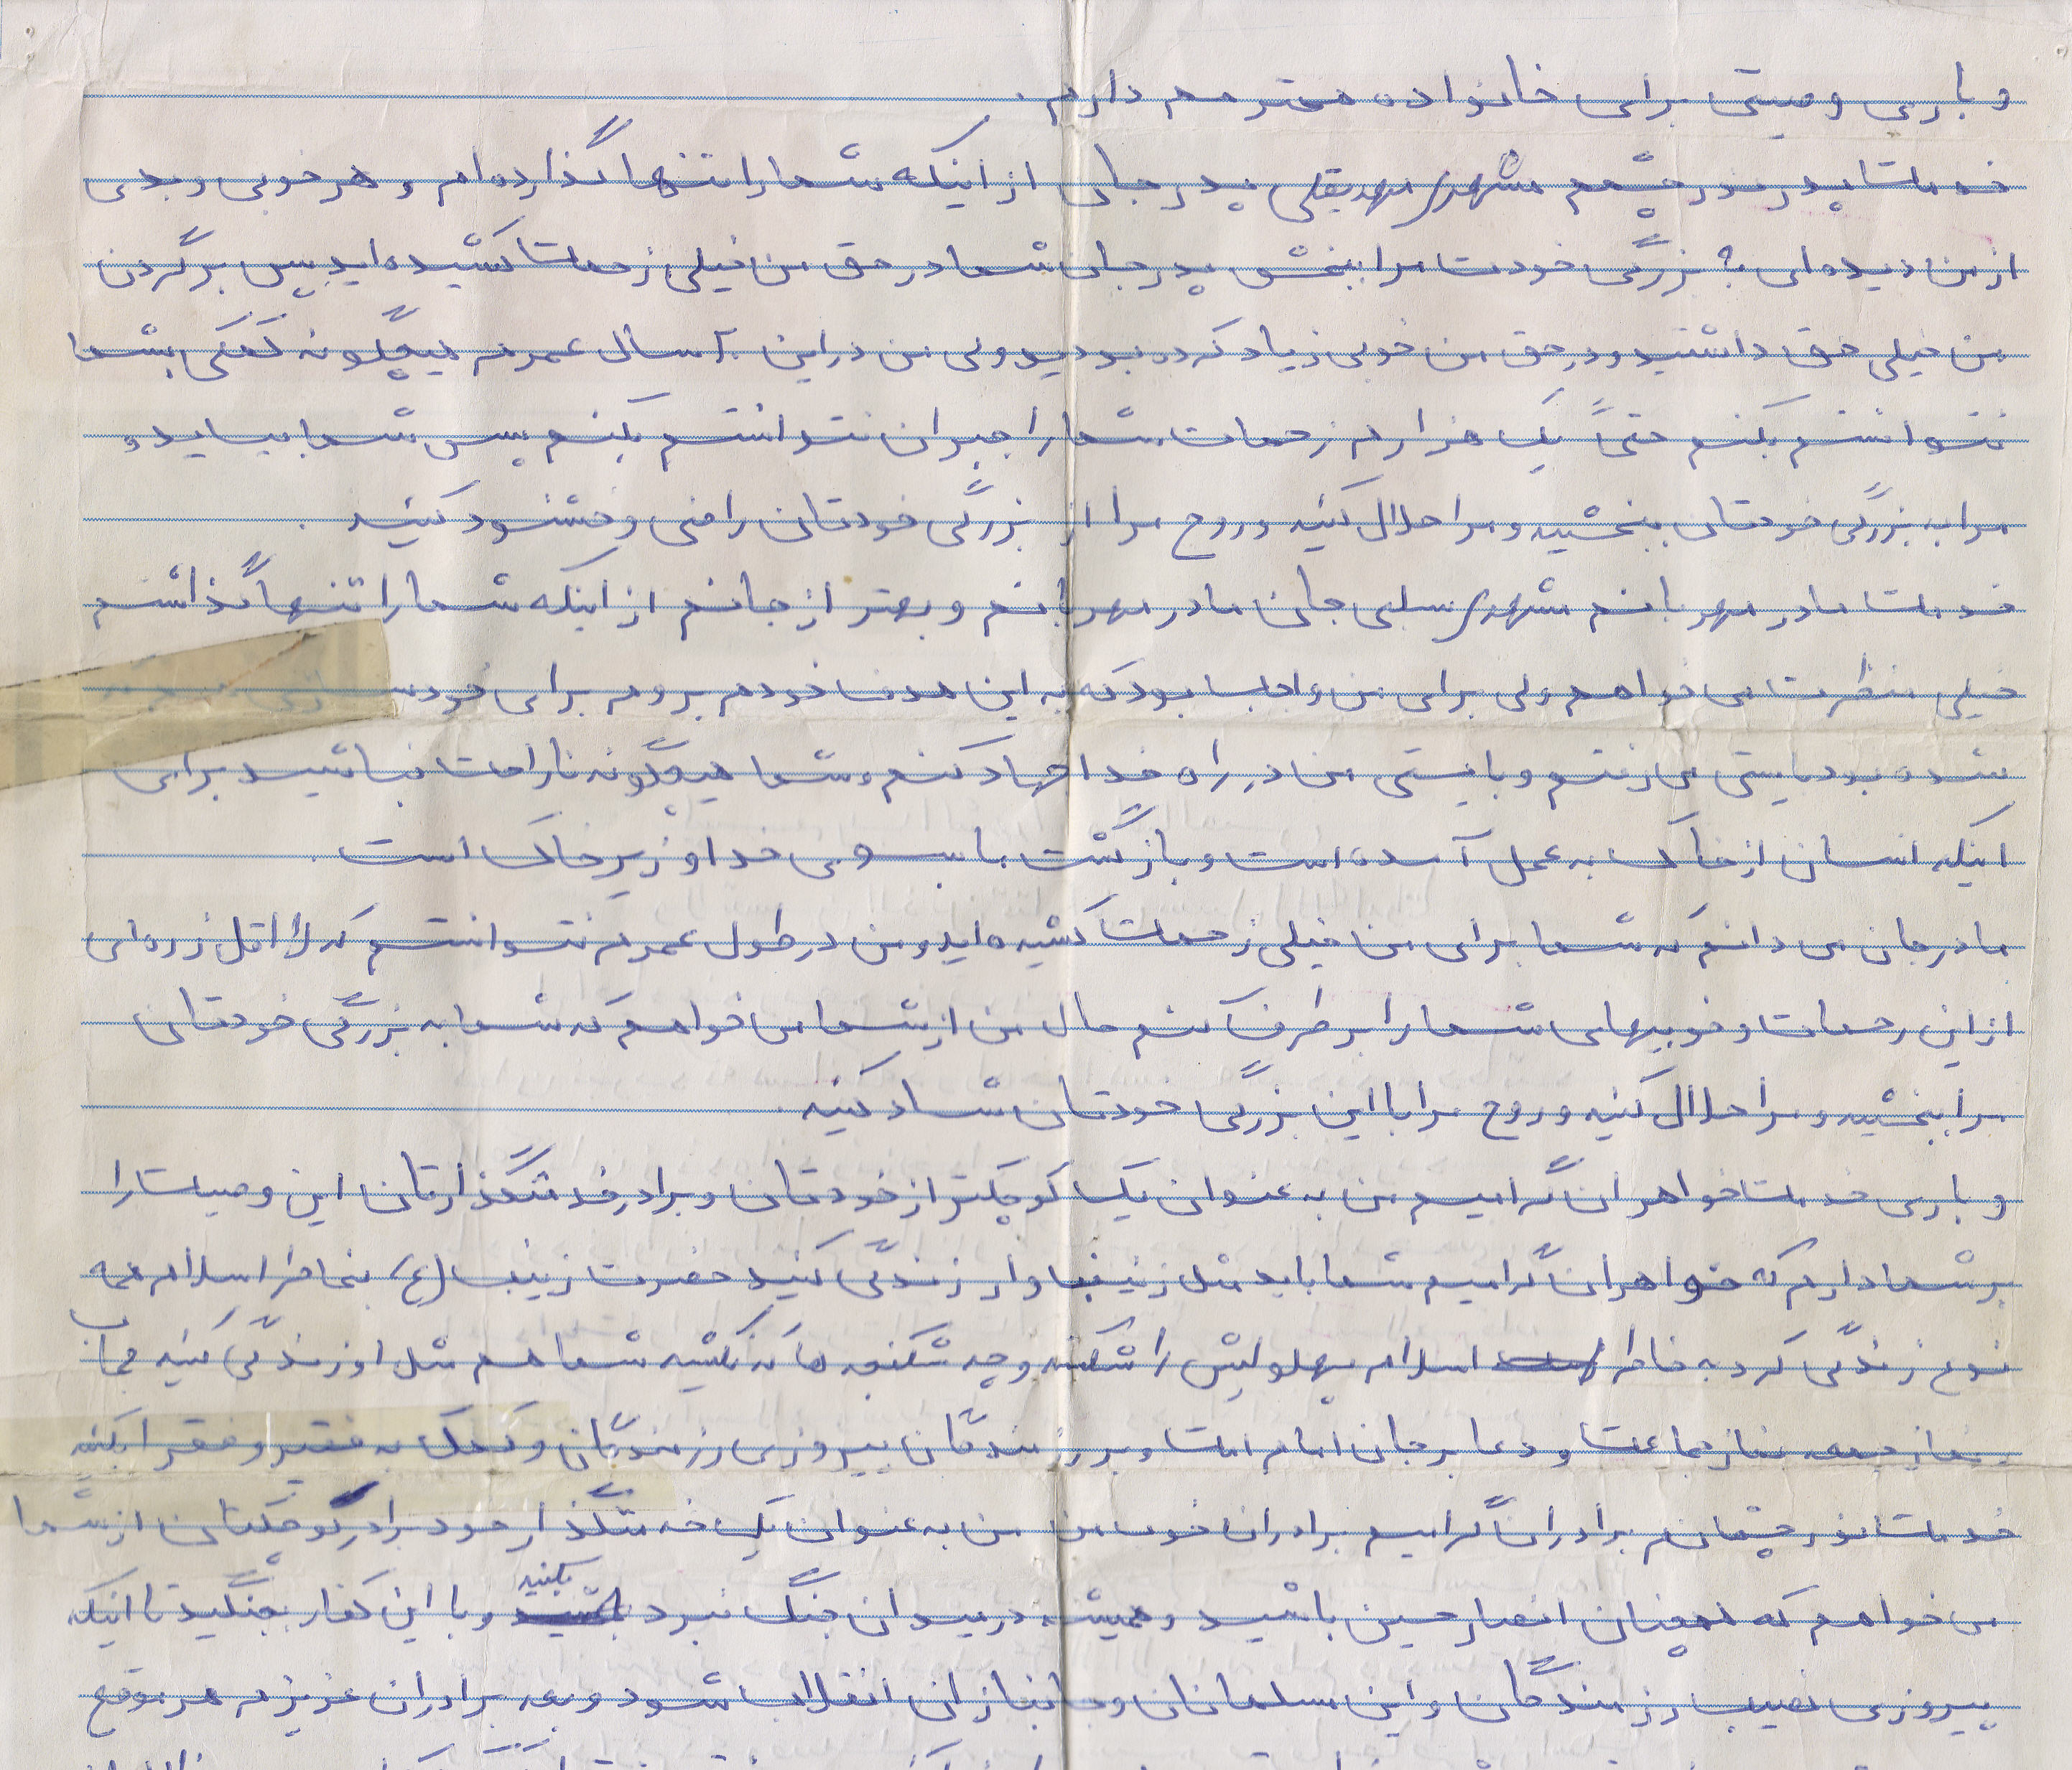 و باری وصیتی برای خانواده محترمم دارم.
خدمت پدر نور چشمم مشهدی مهدیقلی پدر جان از اینکه شما را تنها گذارده‌ام و هر خوبی و بدی
از من دیده‌ای به بزرگی خودت مرا ببخش پدر جان شما در حق من خیلی زحمت کشیده‌اید پس بر گردن
من خیلی حق داشتید و در حق من خوبی زیاد کرده بودید ولی من در این ۲۰ سال عمرم هیچگونه کمکی بشما
نتوانستم بکنم حتیً یک هزارم زحمات شما را جبران نتوانستم بکنم پس شما بیایید و
مرا به بزرگی خودتان ببخشید و مرا حلال کنید و روح مرا از بزرگی خودتان راضی و خشنود کنید.
خدمت مادر مهربانم مشهدی سلبی جان مادر مهربانم و بهتر از جانم از اینکه شما را تنها گذاشتم
خیلی منظرت می خواهم ولی برای من واجب بود که به این هدف خودم بروم برای خودسازی
شده بود بایستی می رفتم و بایستی من در راه خدا جهاد کنم و شما هیچگونه ناراحت نباشید برای
اینکه انسان از خاک به عمل آمده است و بازگشت ما بسوی خدا و زیر خاک است.
مادر جان می دانم که شما برای من خیلی زحمت کشیده‌اید و من در طول عمرم نتوانستم که لااقل ذره‌ای
از این زحمات و خوبیهای شما را بر طرف کنم حال من از شما می خواهم که شما به بزرگی خودتان
مرا ببخشید و مرا حلال کنید و روح مرا با این بزرگی خودتان شاد کنید.
و باری خدمت خواهران گرامیم من به عنوان یک کوچکتر از خودتان و برادر خدمتگذارتان این وصیت را
بر شما دارم که خواهران گرامیم شما باید مثل زینب وار زندگی کنید حضرت زینب (ع) بخاطر اسلام همه
نوع زندگی کرد به خاطر اسلام پهلویش را شکستند و چه شکنجه ها که نکشید شما هم مثل او زندگی کنید حجاب
نماز جمعه نماز جماعت و دعا بر جان امام امت و بر رزمندگان پیروزی رزمندگان و کمک به فقیر و فقرا بکنید
خدمت نور چشمان برادران گرامیم برادران خوب من من به عنوان یک خدمتگذار خود برادر کوچکتان از شما
می خواهم که همچنان انصار حسین باشید و همیشه در میدان جنگ نبرد بکنید و با این کفار بجنگید تا اینکه
پیروزی نصیب رزمندگان و این مسلمانان و جانبازان انقلاب شود و بعد برادران عزیزم هر موقع